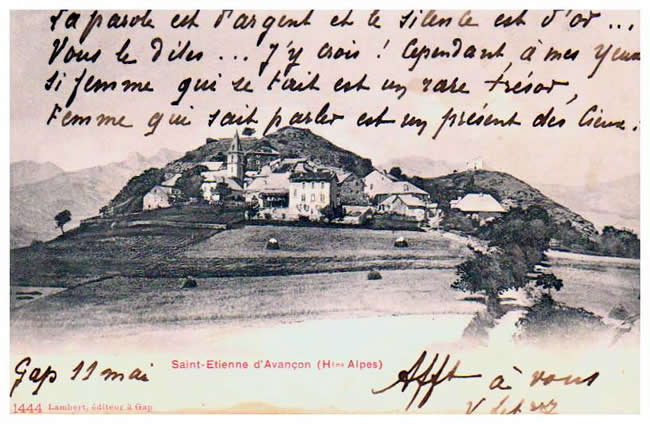 La parole est d'argent et le silence est d'or ...
Vous le dites ... J'y crois ! Cependant, à mes yeux
Si femme qui se tait est un rare trésor,
Femme qui sait parler est un présent des Cieux.
Saint-Etienne d'Avançon (Htes Alpes)
Gap 11 mai
Afft à vous
1444 Lambert, éditeur à Gap